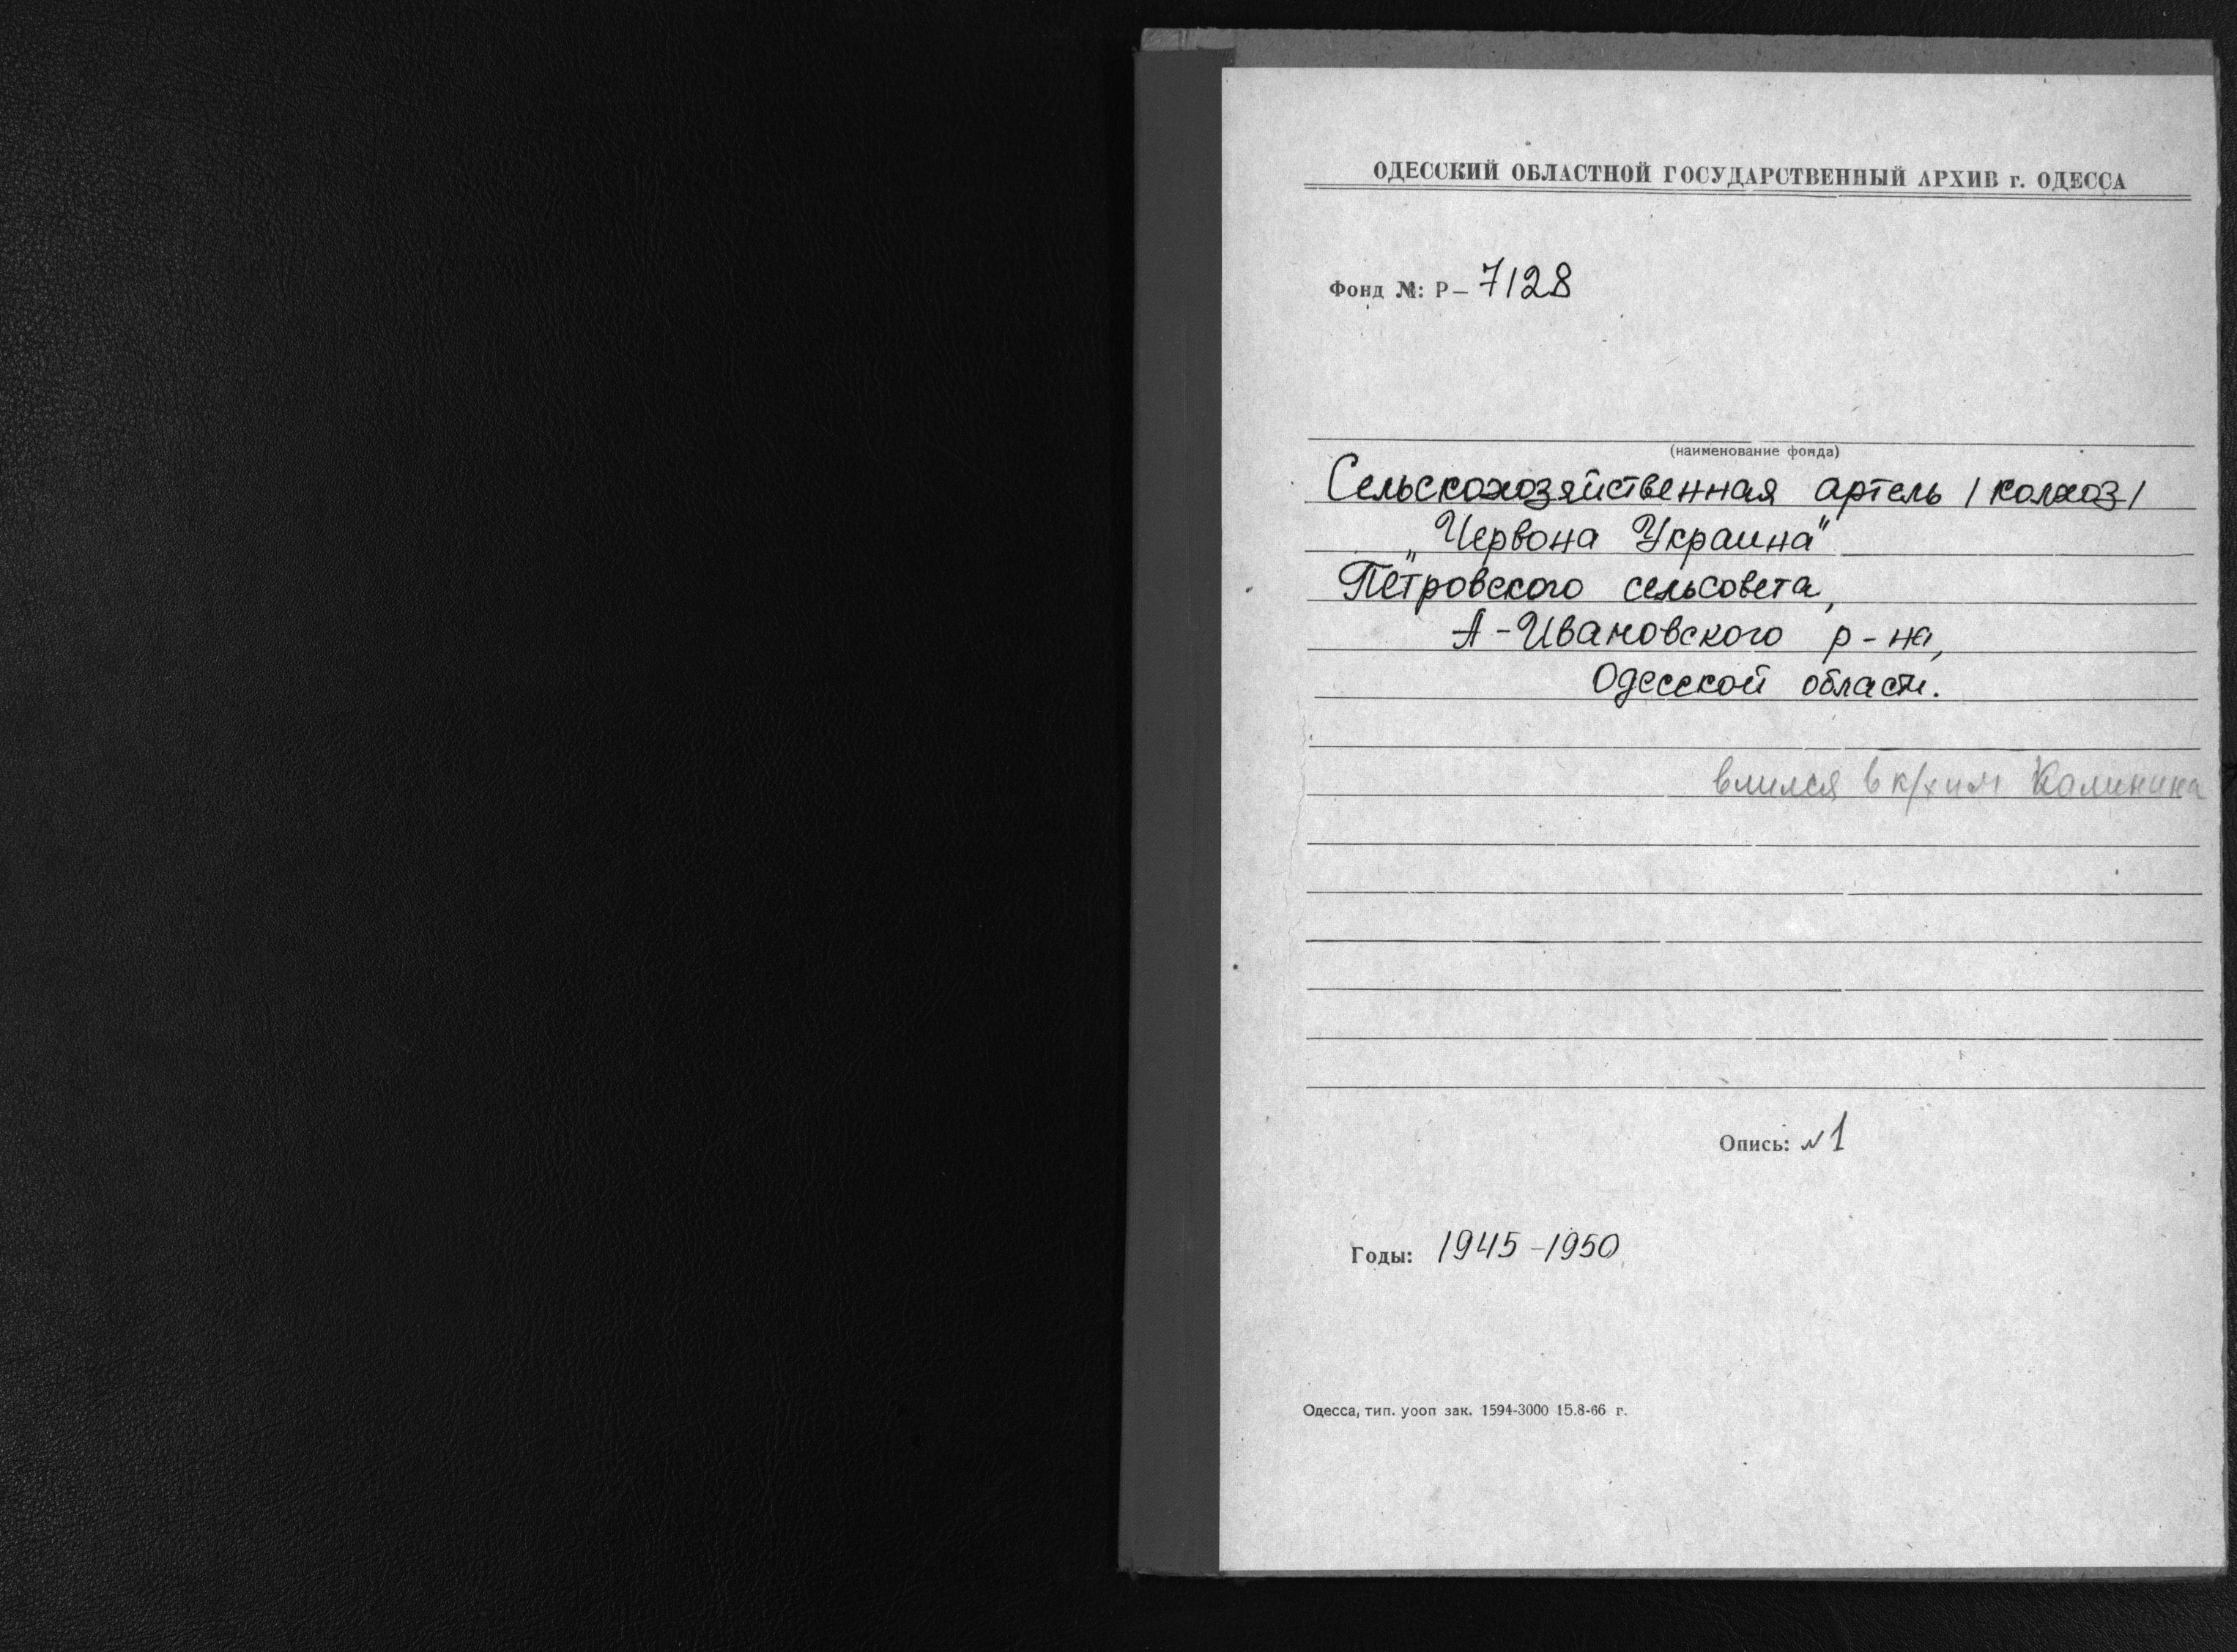 ОДЕССКИЙ ОБЛАСТНОЙ ГОСУДАРСТВЕННЫЙ АРХИВ г. ОДЕССА
Фонд №: Р— 7128
(наименование фонда)
Сельскохозяйственная артель /колхоз/
„Червона Украина"
Петровского сельсовета,
А-Ивановского р-на,
Одесской области.
влился в к/х им Калинина
Опись: №1
Годы: 1945-1950
Одесса, тип. уооп зак. 1594-3000 15.8-66 г.